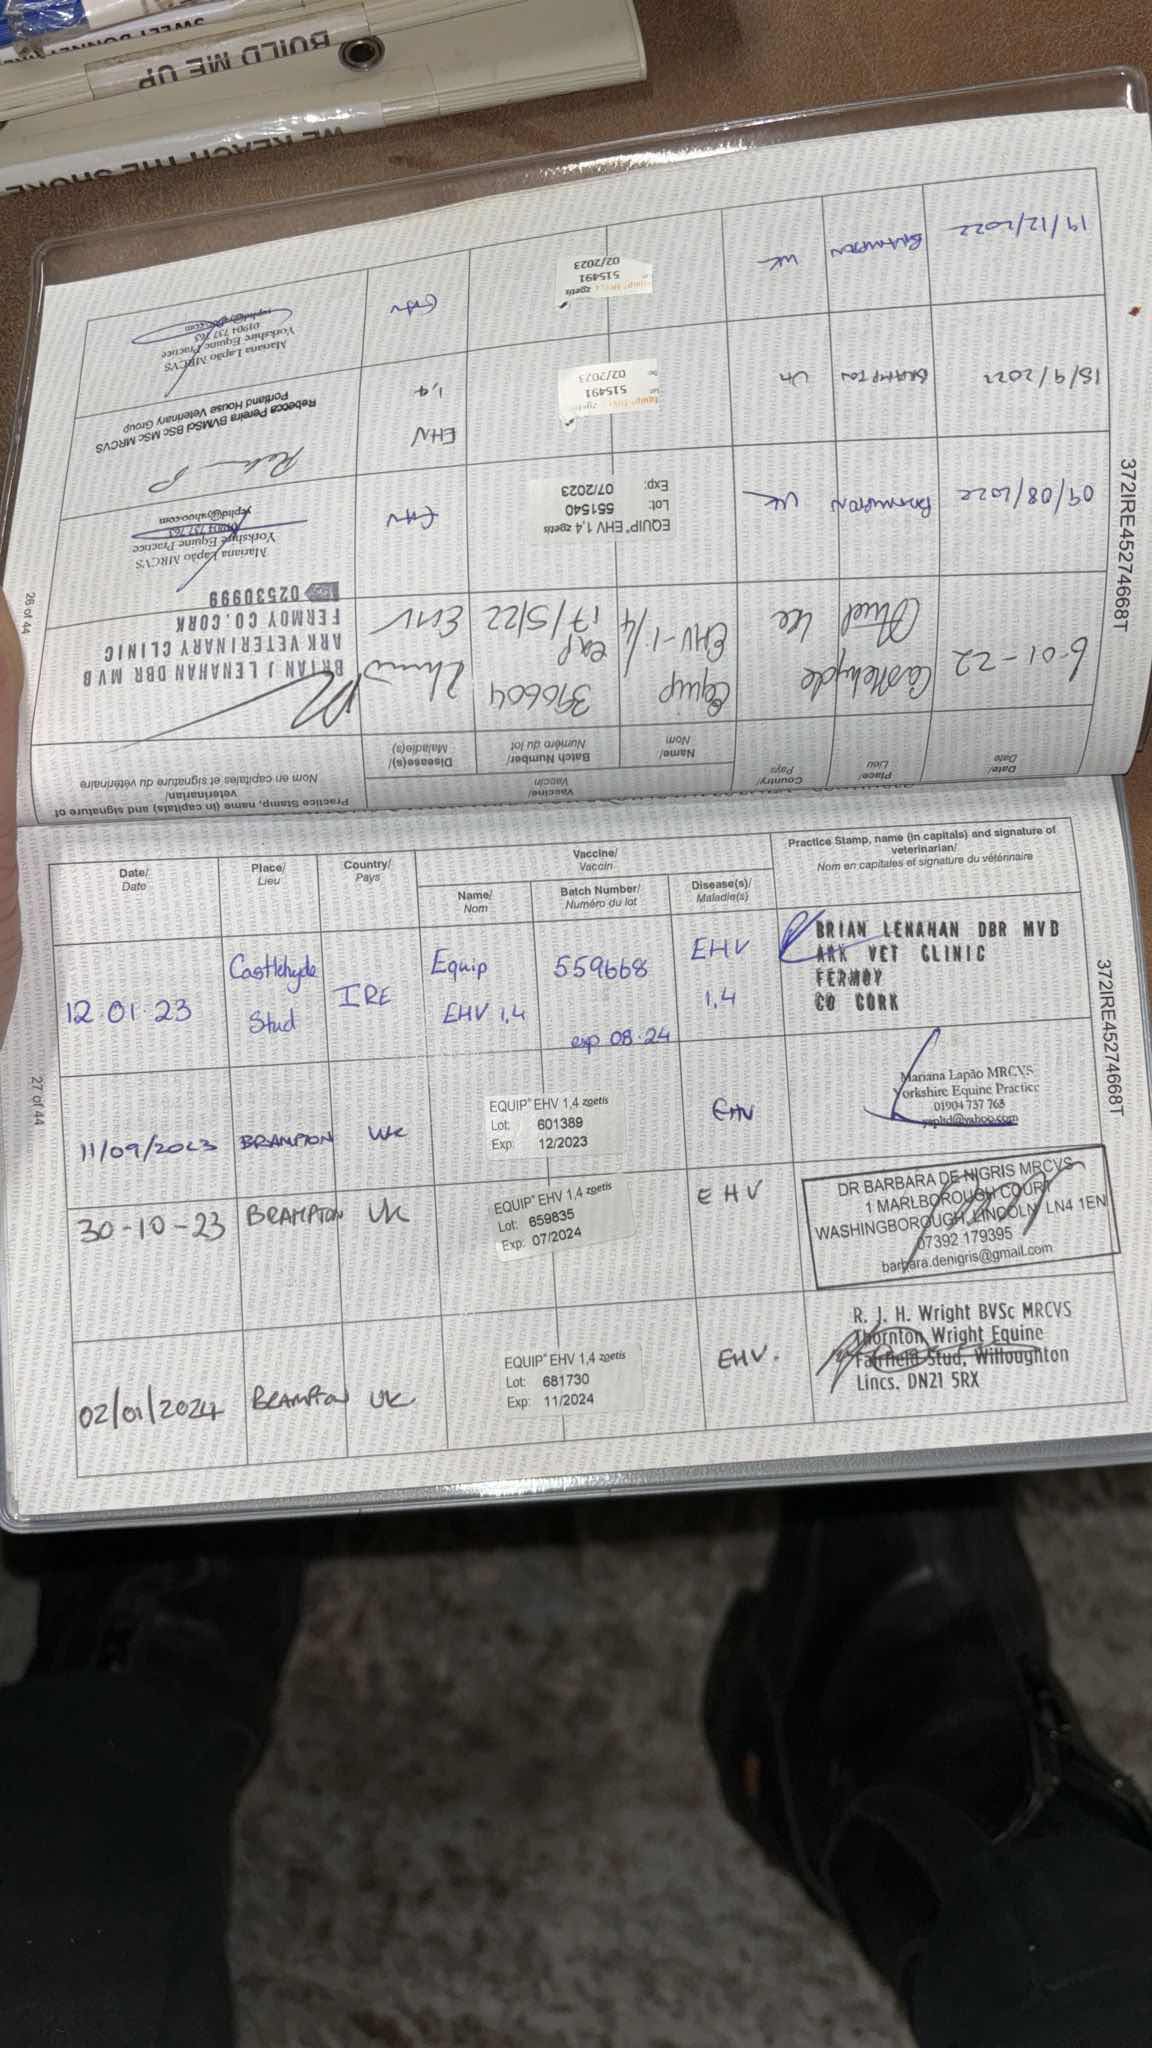 SWEET BONNET
BUILD ME UP
WE REACH THE SHORE
26 of 44
372IRE45274668T
Date/
Date
Place/
Lieu
Country/
Pays
Vaccine/
Vaccin
Name/
Nom
Batch Number/
Numéro du lot
Disease(s)/
Maladie(s)
Practice Stamp, name (in capitals) and signature of
veterinarian/
Nom en capitales et signature du vétérinaire
6-01-22
Castlehyde
Equip
EHV-1/4
390604
exp
17/5/22
EHV
BRIAN J LENAHAN DBR MVB
ARK VETERINARY CLINIC
FERMOY CO. CORK
02530999
09/08/2022
BRAMPTON
UK
EQUIP® EHV 1,4 zoetis
Lot: 551540
Exp: 07/2023
EHV
Mariana Lapão MRCVS
Yorkshire Equine Practice
01904 737 763
yepltd@yahoo.com
15/9/2022
BRAMPTON
UK
zoetis
515491
02/2023
EHV
1,4
Rebecca Pereira BVMSci BSc MSc MRCVS
Portland House Veterinary Group
19/12/2022
BRAMPTON
UK
zoetis
515491
02/2023
EHV
Mariana Lapão MRCVS
Yorkshire Equine Practice
01904 737 763
27 of 44
372IRE45274668T
Date/
Date
Place/
Lieu
Country/
Pays
Vaccine/
Vaccin
Name/
Nom
Batch Number/
Numéro du lot
Disease(s)/
Maladie(s)
Practice Stamp, name (in capitals) and signature of
veterinarian/
Nom en capitales et signature du vétérinaire
12.01.23
Castlehyde
Stud
IRE
Equip
EHV 1,4
559668
exp 08.24
EHV
1,4
BRIAN LENAHAN DBR MVB
ARK VET CLINIC
FERMOY
CO CORK
11/09/2023
BRAMPTON
UK
EQUIP® EHV 1,4 zoetis
Lot: 601389
Exp: 12/2023
EHV
Mariana Lapão MRCVS
Yorkshire Equine Practice
01904 737 763
yepltd@yahoo.com
30-10-23
BRAMPTON
UK
EQUIP® EHV 1,4 zoetis
Lot: 659835
Exp: 07/2024
EHV
DR BARBARA DE NIGRIS MRCVS
1 MARLBOROUGH COURT
WASHINGBOROUGH, LINCOLN LN4 1EN
07392 179395
barbara.denigris@gmail.com
02/01/2024
BRAMPTON
UK
EQUIP® EHV 1,4 zoetis
Lot: 681730
Exp: 11/2024
EHV.
R. J. H. Wright BVSc MRCVS
Thornton Wright Equine
Fairfield Stud, Willoughton
Lincs. DN21 5RX